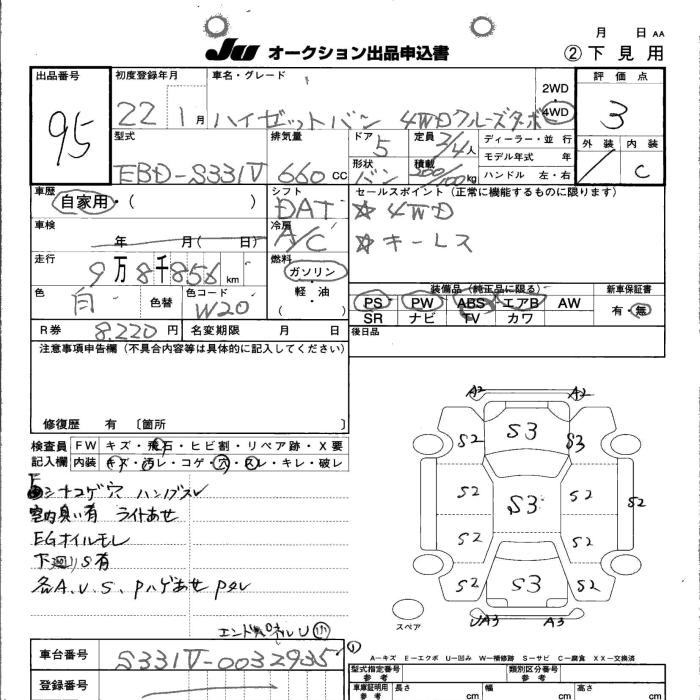 月 日 AA
JU オークション出品申込書 ②下見用
出品番号 初度登録年月 車名・グレード 2WD 4WD 評価点
95 22 1月 ハイゼットバン 4WDクルーズターボ 3
型式 排気量 ドア 5 定員 2/4人 ディーラー・並行 外装 内装
モデル年式 年
EBD-S331V 660 CC 形状 バン 積載 kg ハンドル 左・右 C
車歴 シフト セールスポイント(正常に機能するものに限ります)
自家用・( ) DAT ☆ 4WD
車検 冷房
年 月( 日) A/C ☆ キーレス
走行 燃料
9万8千856km ガソリン・軽油 装備品(純正品に限る) 新車保証書
色 色替 色コード ( ) PS PW ABS エアB AW 有・無
白 W20 SR ナビ TV カワ
R券 8,220円 名変期限 月 日 後日品
注意事項申告欄(不具合内容等は具体的に記入してください)
修復歴 有 〔箇所 〕
検査員 FW キズ・飛石・ヒビ割・リペア跡・X要
記入欄 内装 キズ・汚レ・コゲ・穴・スレ・キレ・破レ
シートコゲ穴 ハンドルスレ
室内臭い有 ライトあせ
EGオイルモレ
下廻りS有
各A.U.S.Pハゲあせ
エンドパネルU
A2 A2
S2 S3 S3
S2 S3 S2 S2
S2 S2
S2 S3 S2
UA3 A3
スペア
車台番号 S331V-0032935
A-キズ E-エクボ U-凹み W-補修跡 S-サビ C-腐食 XX-交換済
型式指定番号 類別区分番号
参考 参考
登録番号 車庫証明用 長さ 幅 高さ
参考 cm cm cm